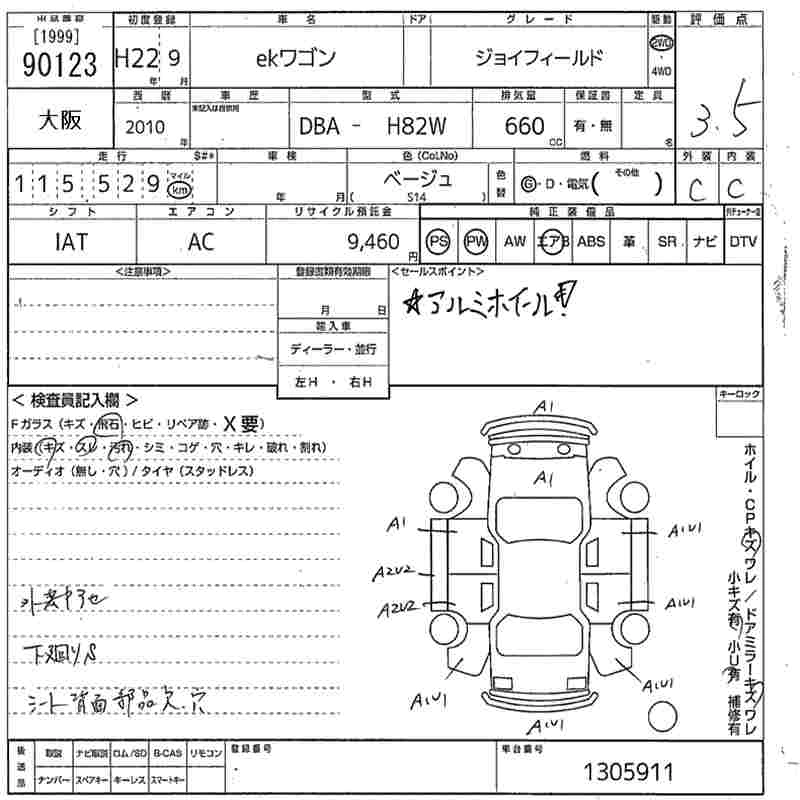 [1999]
90123
初度登録 車名 ドア グレード 駆動 評価点
H22年 9月 ekワゴン ジョイフィールド 2WD
4WD
3.5
大阪
西暦 車歴 型式 排気量 保証書 定員
未記入は自家用
2010年 DBA - H82W 660CC 有・無 名
走行 $#* 車検 色(Col.No) 燃料 外装 内装
115529 マイル km 年 月 ベージュ (S14) 色替 G・D・電気( その他 ) C C
シフト エアコン リサイクル預託金 純正装備品
IAT AC 9,460円 PS PW AW エアB ABS 革 SR ナビ DTV
<注意事項> 登録書類有効期限 <セールスポイント>
月 日
☆アルミホイール!!
輸入車
ディーラー・並行
左H ・ 右H
キーロック
< 検査員記入欄 >
Fガラス(キズ・飛石・ヒビ・リペア跡・X要)
内装(キズ・スレ・汚れ・シミ・コゲ・穴・キレ・破れ・割れ)
オーディオ(無し・穴)/タイヤ(スタッドレス)
A1
A1
A1 A1U1
A2U2
A2U2 A1U1
A1U1 A1U1
A1U1
ホイル・CPキズワレ/ドアミラーキズワレ
小キズ有 小U有 補修有
下廻りS
シート背面部品欠.穴
後送品 取説 ナビ取説 ロム/SD B-CAS リモコン 登録番号 車台番号
ナンバー スペアキー キーレス スマートキー
1305911